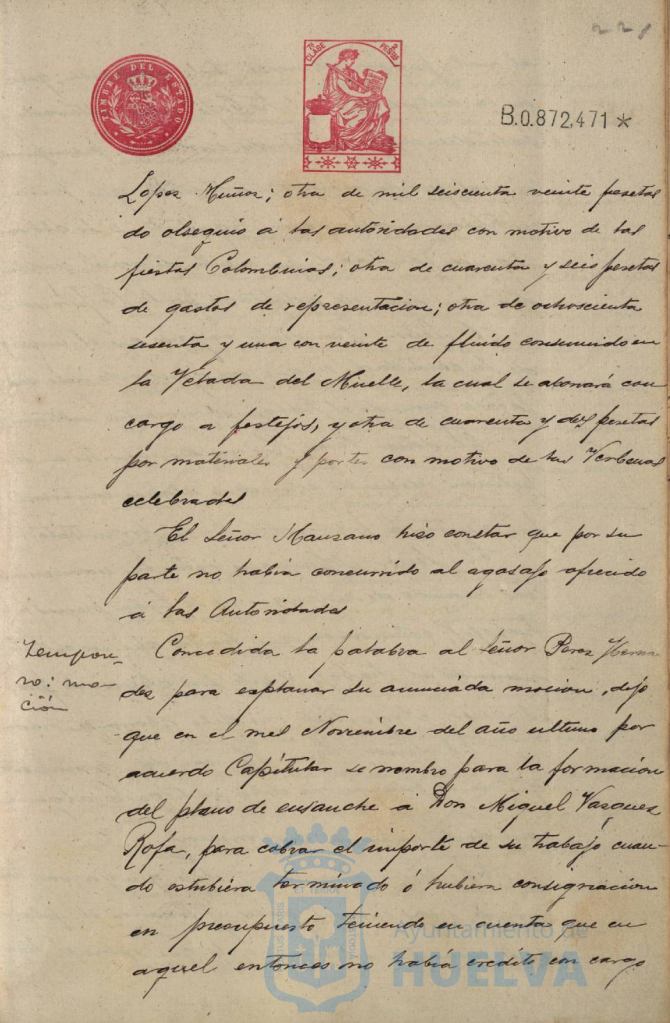 228
TIMBRE DEL ESTADO
7ª CLASE
2 PESOS
B.0.872,471 *
Lopez Muñoz; otra de mil seiscienta veinte pesetas
do obsequio á las autoridades con motivo de las
fiestas Colombinas; otra de cuarenta y seis pesetas
de gastos de representacion; otra de ochoscienta
sesenta y una con veinte de fluido consumido en
la Velada del Muelle, la cual se abonará con
cargo a festejos, y otra de cuarenta y dos pesetas
por materiales y portes con motivo de las Verbenas
celebradas
El Señor Manzano hiso constar que por su
parte no habia concurrido al agasajo ofrecido
á las Autoridades
Concedida la palabra al Señor Perez
des para explanar su anunciada mocion, dijo
que en el mes Noviembre del año ultimo por
acuerdo Capitular se nombro para la formacion
del plano de ensanche á Don Miguel Vazquez
Rofa, para cobrar el importe de su trabajo cuan-
do estubiera terminado ó hubiera consignacion
en presupuesto teniendo en cuenta que en
aquel entonces no habia credito con cargo
mo-
ción
Ayuntamiento de
HUELVA